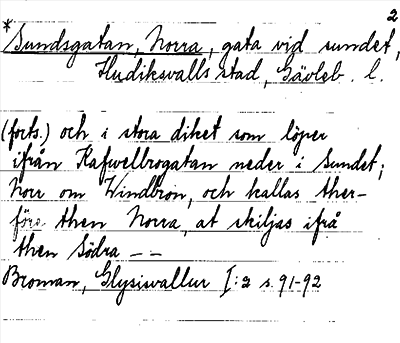 2
*Sundsgatan, Norra, gata vid sundet,
Hudiksvalls stad, Gävleb. l.
(forts.) och i stora diket som löper
ifrån Kafwelbrogatan neder i Sundet;
Norr om Windbron, och kallas ther-
före then Norra, at skiljas ifrå
then Södra — —
Broman, Glysisvallur I:2 s. 91-92